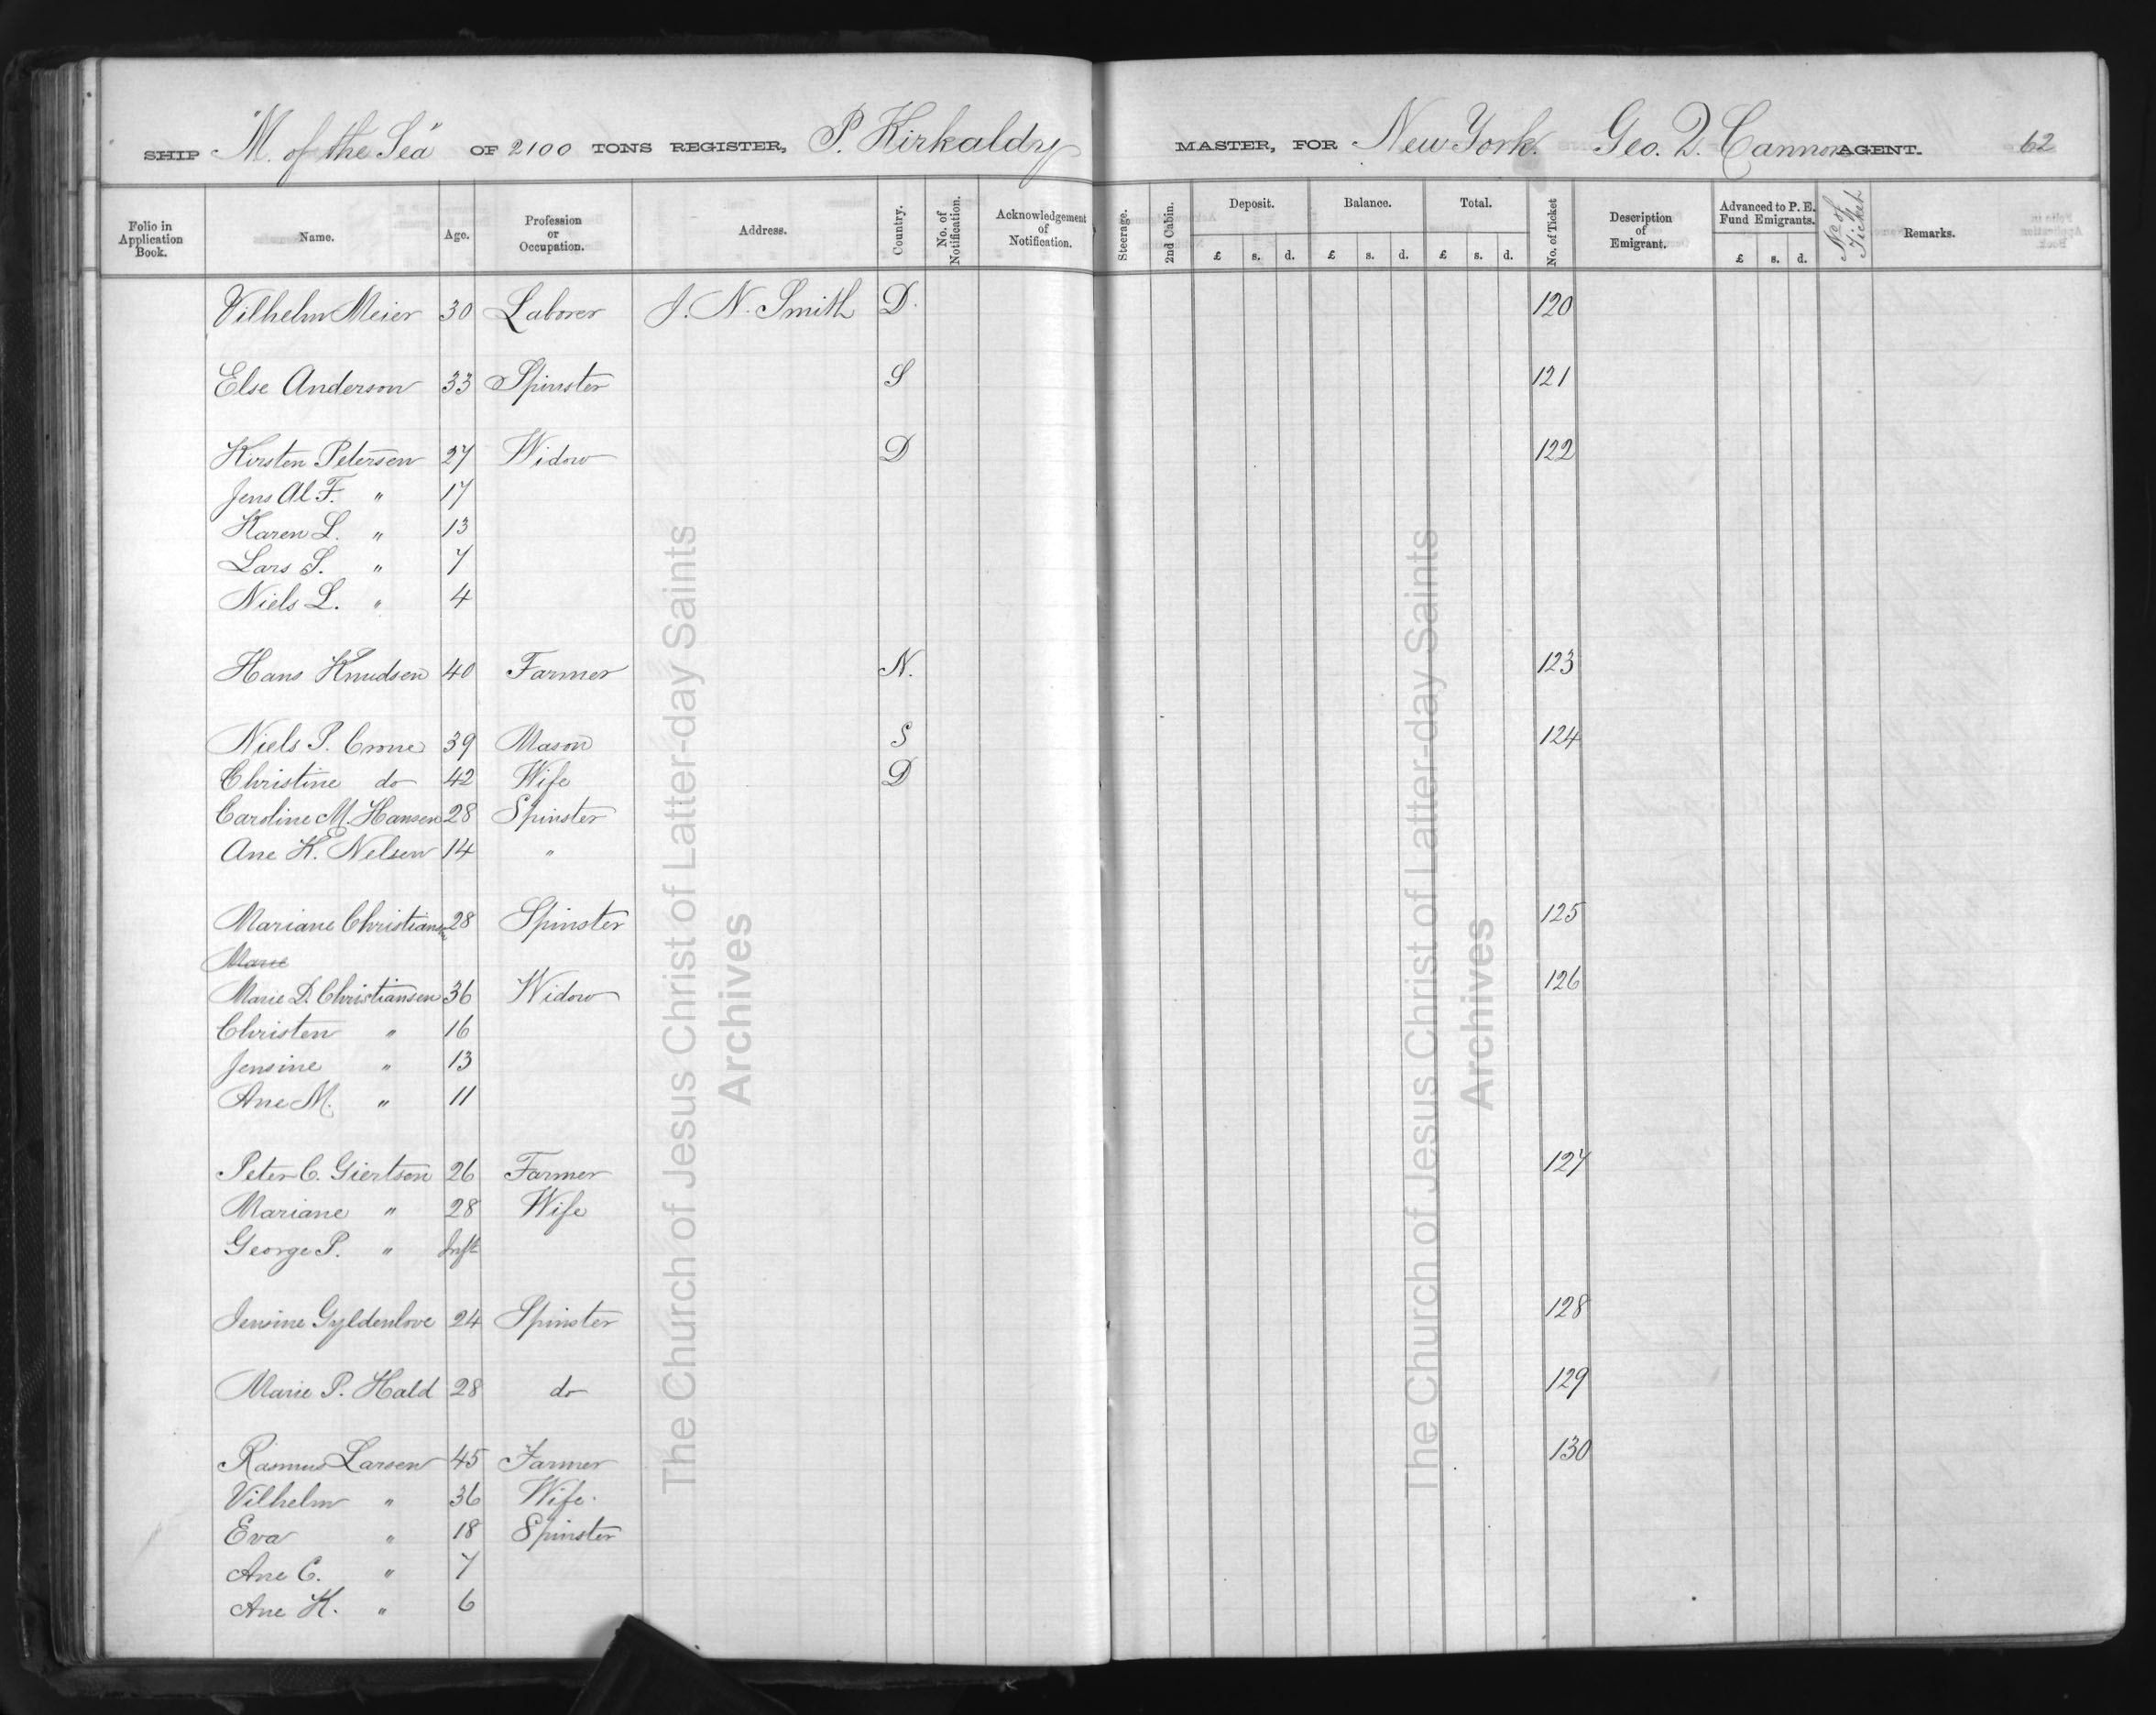 SHIP "M. of the Sea" OF 2100 TONS REGISTER, P. Kirkaldy MASTER, FOR New York. Geo. Q. Cannon AGENT. 62
Folio in Application Book. Name. Age. Profession or Occupation. Address. Country. No. of Notification. Acknowledgement of Notification. Steerage. 2nd Cabin. Deposit. £ s. d. Balance. £ s. d. Total. £ s. d. No. of Ticket Description of Emigrant. Advanced to P. E. Fund Emigrants. £ s. d. No of Ticket Remarks.
Vilhelm Meier 30 Laborer J. N. Smith D. 120
Else Anderson 33 Spinster S 121
Kirsten Petersen 27 Widow D 122
Jens Al F. " 17
Karen L. " 13
Lars S. " 7
Niels L. " 4
Hans Knudsen 40 Farmer N. 123
Niels P. Crone 39 Mason S 124
Christine do 42 Wife D
Caroline M. Hansen 28 Spinster
Ane K. Nelsen 14 "
Mariane Christiansen 28 Spinster 125
Marie
Marie D. Christiansen 36 Widow 126
Christen " 16
Jensine " 13
Ane M. " 11
Peter C. Giertsen 26 Farmer 127
Mariane " 28 Wife
George P. " Inft
Jensine Gyldenlove 24 Spinster 128
Marie P. Hald 28 do 129
Rasmus Larsen 45 Farmer 130
Vilhelm " 36 Wife.
Eva " 18 Spinster
Ane C. " 7
Ane K. " 6
The Church of Jesus Christ of Latter-day Saints
Archives
The Church of Jesus Christ of Latter-day Saints
Archives